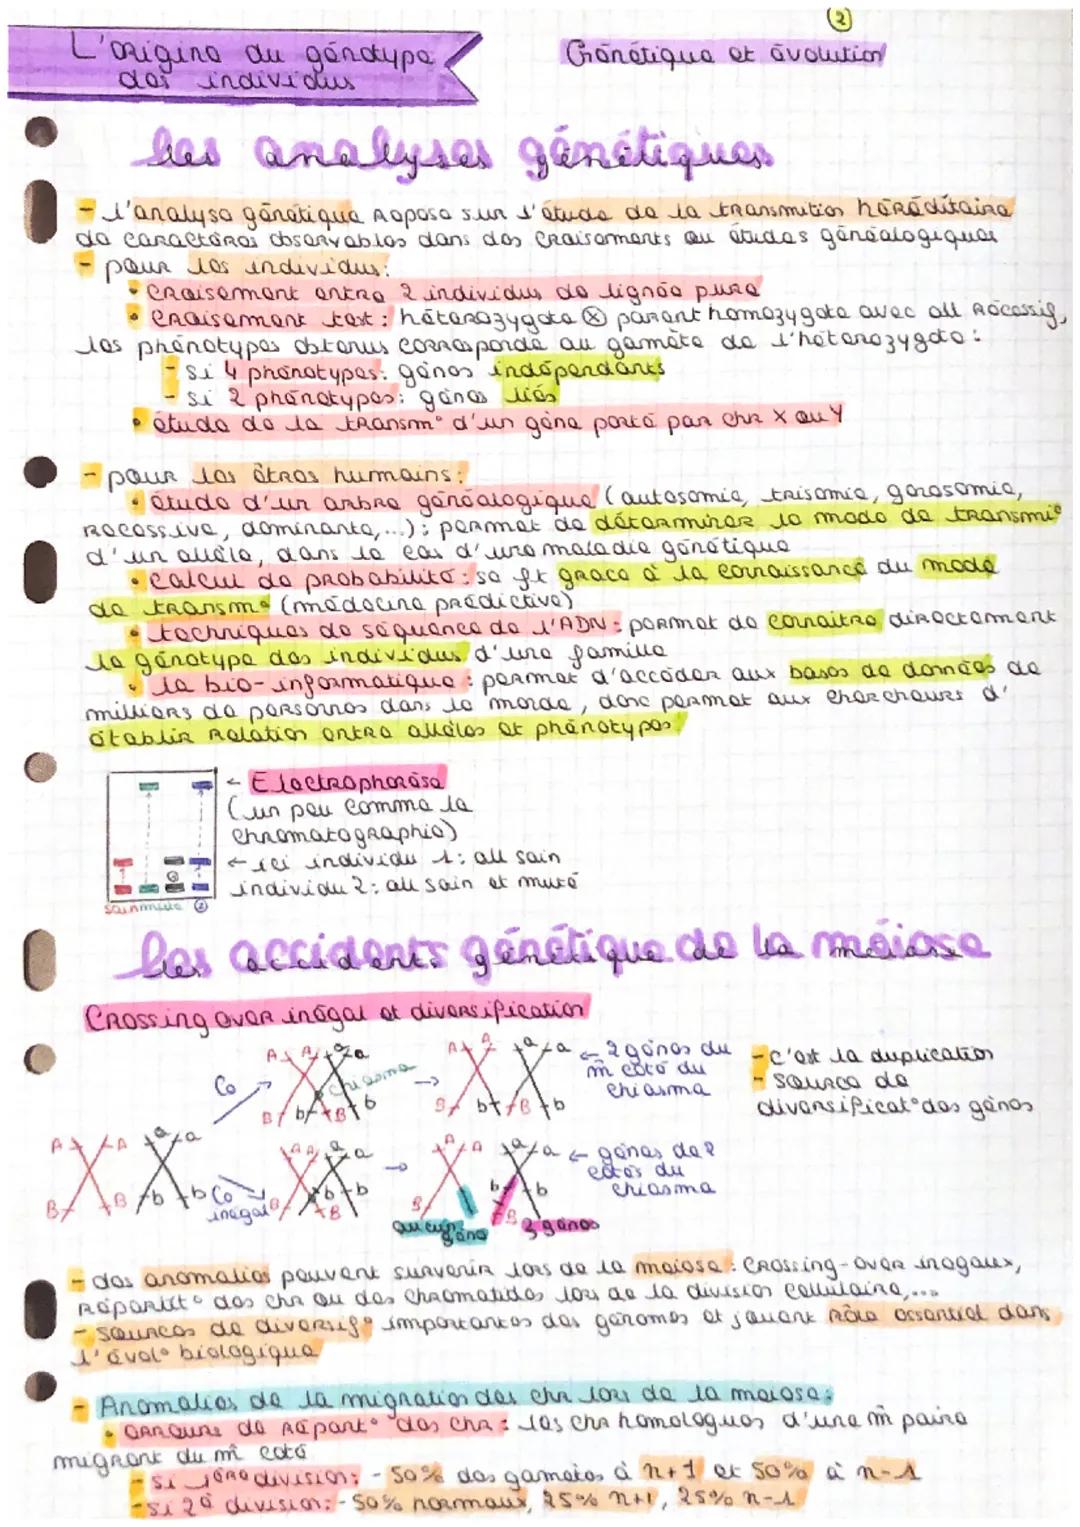 2
L'origine du génotype
des individus
Génétique et évolution
les analyses génétiques
- l'analyse génétique repose sur l'étude de la transmition héréditaire
de caractères observables dans des croisements ou études généalogiques
- pour les individus:
• croisement entre 2 individus de lignée pure
• croisement test: hétérozygote ⊗ parent homozygote avec all récessif,
les phénotypes obtenus corresponde au gamète de l'hétérozygote:
- si 4 phénotypes: gènes indépendants
- si 2 phénotypes: gènes liés
• étude de la transm° d'un gène porté par chr X ou Y
- pour les êtres humains:
• étude d'un arbre généalogique (autosomie, trisomie, gonosomie,
recessive, dominante,...): permet de déterminer le mode de transmi°
d'un allèle, dans le cas d'une maladie génétique
• calcul de probabilité: se ft grace à la connaissance du mode
de transm° (médecine prédictive)
• techniques de séquence de l'ADN: permet de connaitre directement
le génotype des individus d'une famille
• la bio-informatique: permet d'accéder aux bases de données de
milliers de personnes dans le monde, donc permet aux chercheurs d'
établir relation entre allèles et phénotypes
← Electrophorèse
(un peu comme la
chromatographie)
← ici individu 1: all sain
individu 2: all sain et muté
sain mute ②
les accidents génétique de la méiose
Crossing over inégal et diversification
A A a a
Co
chiasma
B b B b
A A a a
B b B b
← 2 gènes du
m̂ coté du
chiasma
- c'est la duplication
- source de
diversificat° des gènes
A A a a
B B b b
Co
inégal
A A a a
B b B b
A A a a
B b B b
← gènes de 2
cotés du
chiasma
aucun gène
3 gènes
- des anomalies peuvent survenir lors de la meiose: crossing-over inégaux,
répartit° des chr ou des chromatides lors de la division cellulaire,...
- sources de diversif° importantes des génomes et jouant rôle essentiel dans
l'évol° biologique
- Anomalies de la migration des chr lors de la meiose:
• erreurs de répart° des chr: les chr homologues d'une m̂ paire
migrent du m̂ coté
- si 1ère division: - 50% des gametes à n+1 et 50% à n-1
- si 2è division: - 50% normaux, 25% n+1, 25% n-1